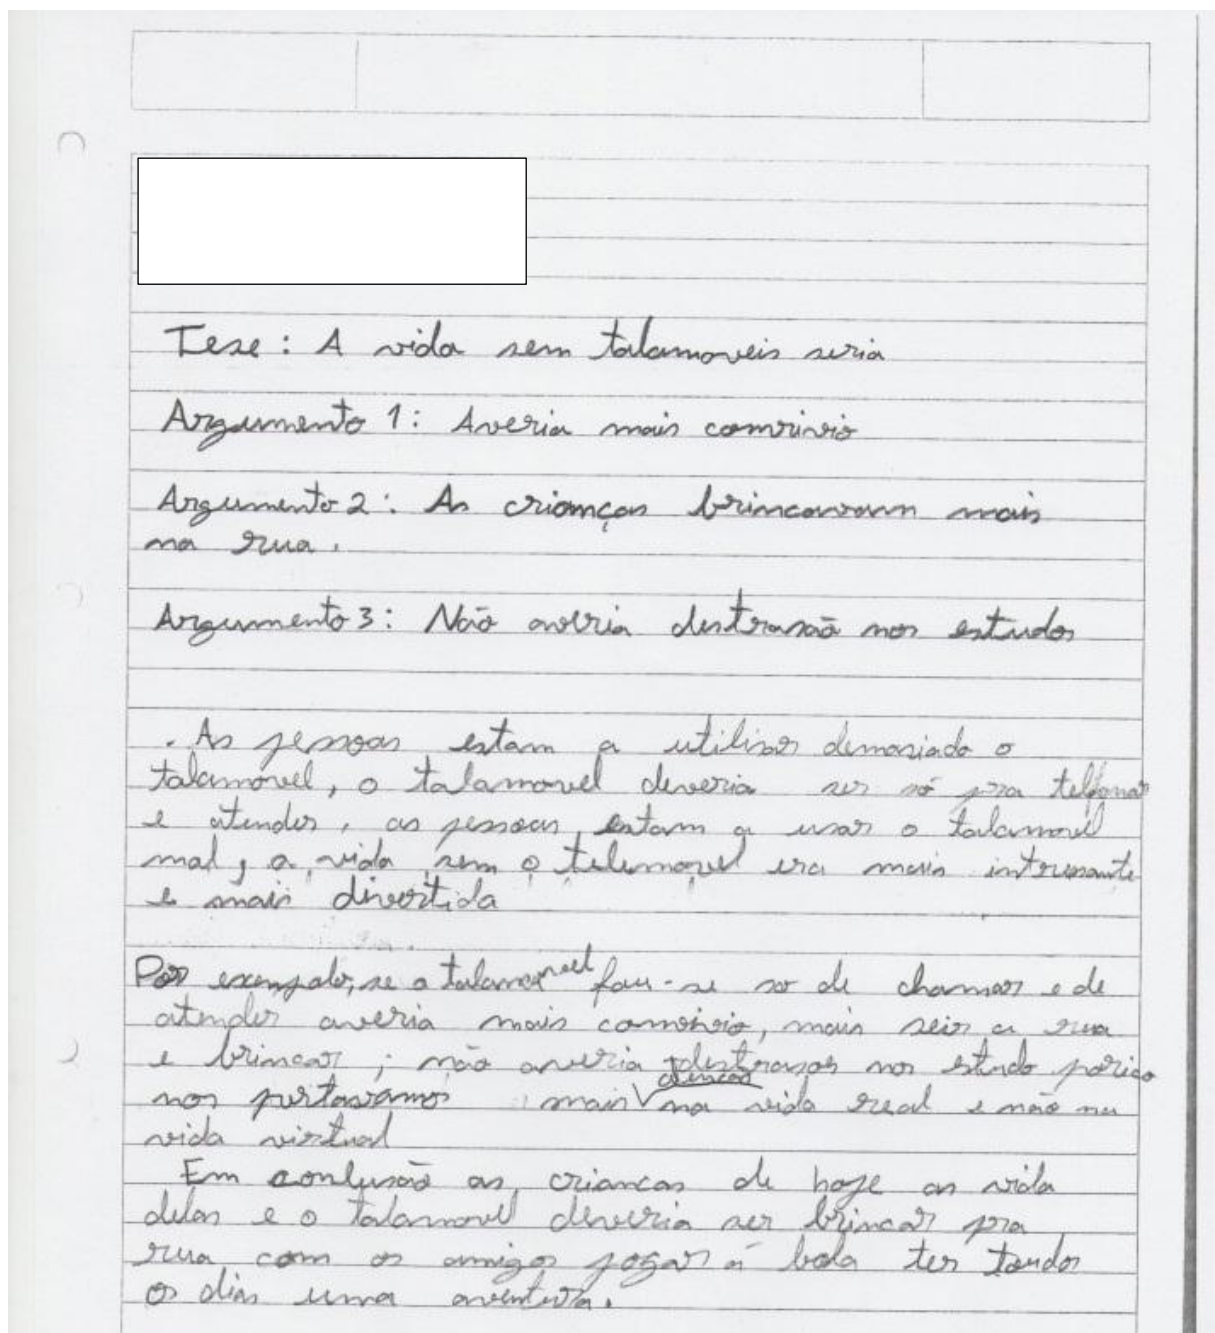 Tese: A vida sem talamoveis seria
Argumento 1: Averia mais comvivio
Argumento 2: As crianças brincavam mais
na rua.
Argumento 3: Não averia destrasão nos estudos
. As pessoas estam a utilisar demasiado o
talamóvel, o talamovel deveria ser só pra telfonar
e atender, as pessoas estam a usar o talamovel
mal, a vida sem o telemovel era mais intresante
e mais divertida
Por exempalo, se o talamovel fou-se so de chamar e de
atender averia mais comvivio, mais seir a rua
e brincar, não averia destrasos nos estudo poriso
nos purtavamos mais atencao na vida real e não na
vida virtual
Em conlusão as criancas de hoje as vida
delas e o talamovel deveria ser brincar pra
rua com os amigos jogar á bola ter toudos
os dias uma aventura.